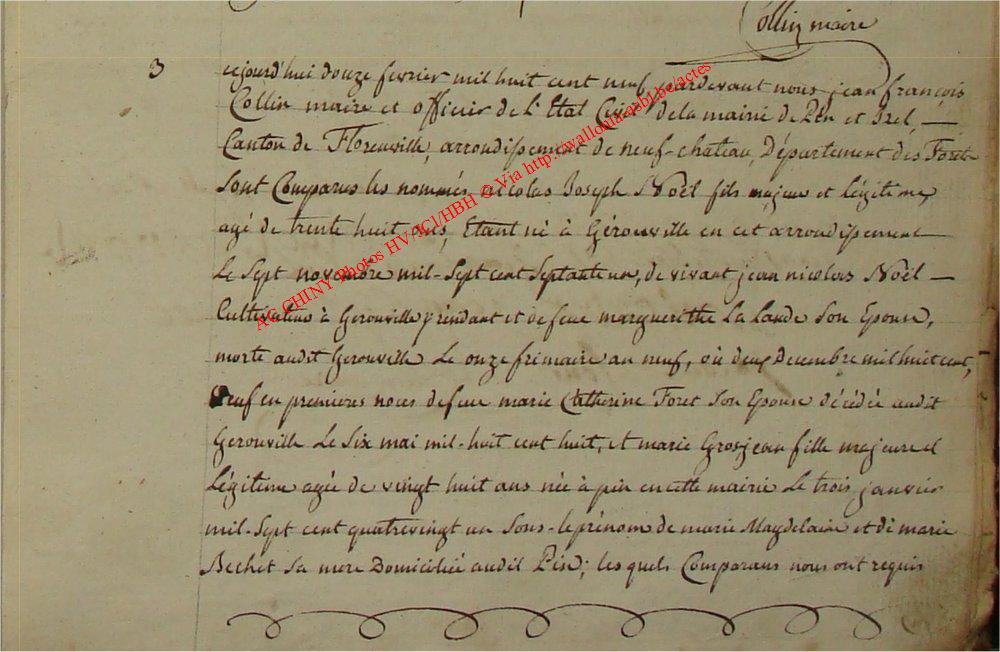 Collin maire
3
cejourd'hui douze fevrier mil huit cent neuf pardevant nous jean françois
Collin maire et officier de l'Etat Civil de la mairie de Pin et Izel, —
Canton de Florenville, arrondissement de neuf-chateau, Département des Forets
sont Comparus les nommés nicolas Joseph Noël fils majeur et légitime,
agé de trente huit ans, Etant né à Gérouville en cet arrondissement —
Le Sept novembre mil-Sept cent Septante un, de vivant jean nicolas Noël —
Cultivateur à Gerouville y rendant et de feue margueritte La Lande Son Epouse,
morte audit Gerouville Le onze frimaire an neuf, où deux Decembre mil huit cent,
Veuf en premieres noces de feue marie Catherine Foret Son Epouse décédée audit
Gerouville Le Six mai mil-huit cent huit, et marie Grosjean fille majeure et
Légitime agée de vingt huit ans née à pin en cette mairie Le trois janvier
mil-Sept cent quatrevingt un Sous-le prénom de marie Magdelaine et de marie
Bechet Sa mere Domiciliée audit Pin; les quels Comparans nous ont requis
AG CHINY Photos HV/JCJ/HBH © Via http://awallonia.asbl.be/actes